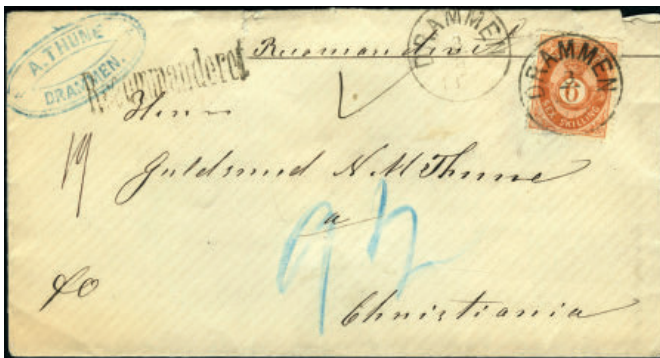 A. THUNE
DRAMMEN.
Recommanderet
Recomanderet
DRAMMEN
DRAMMEN
6
SEX SKILLING
Herr
Guldsmed N. M Thune
a
Christiania